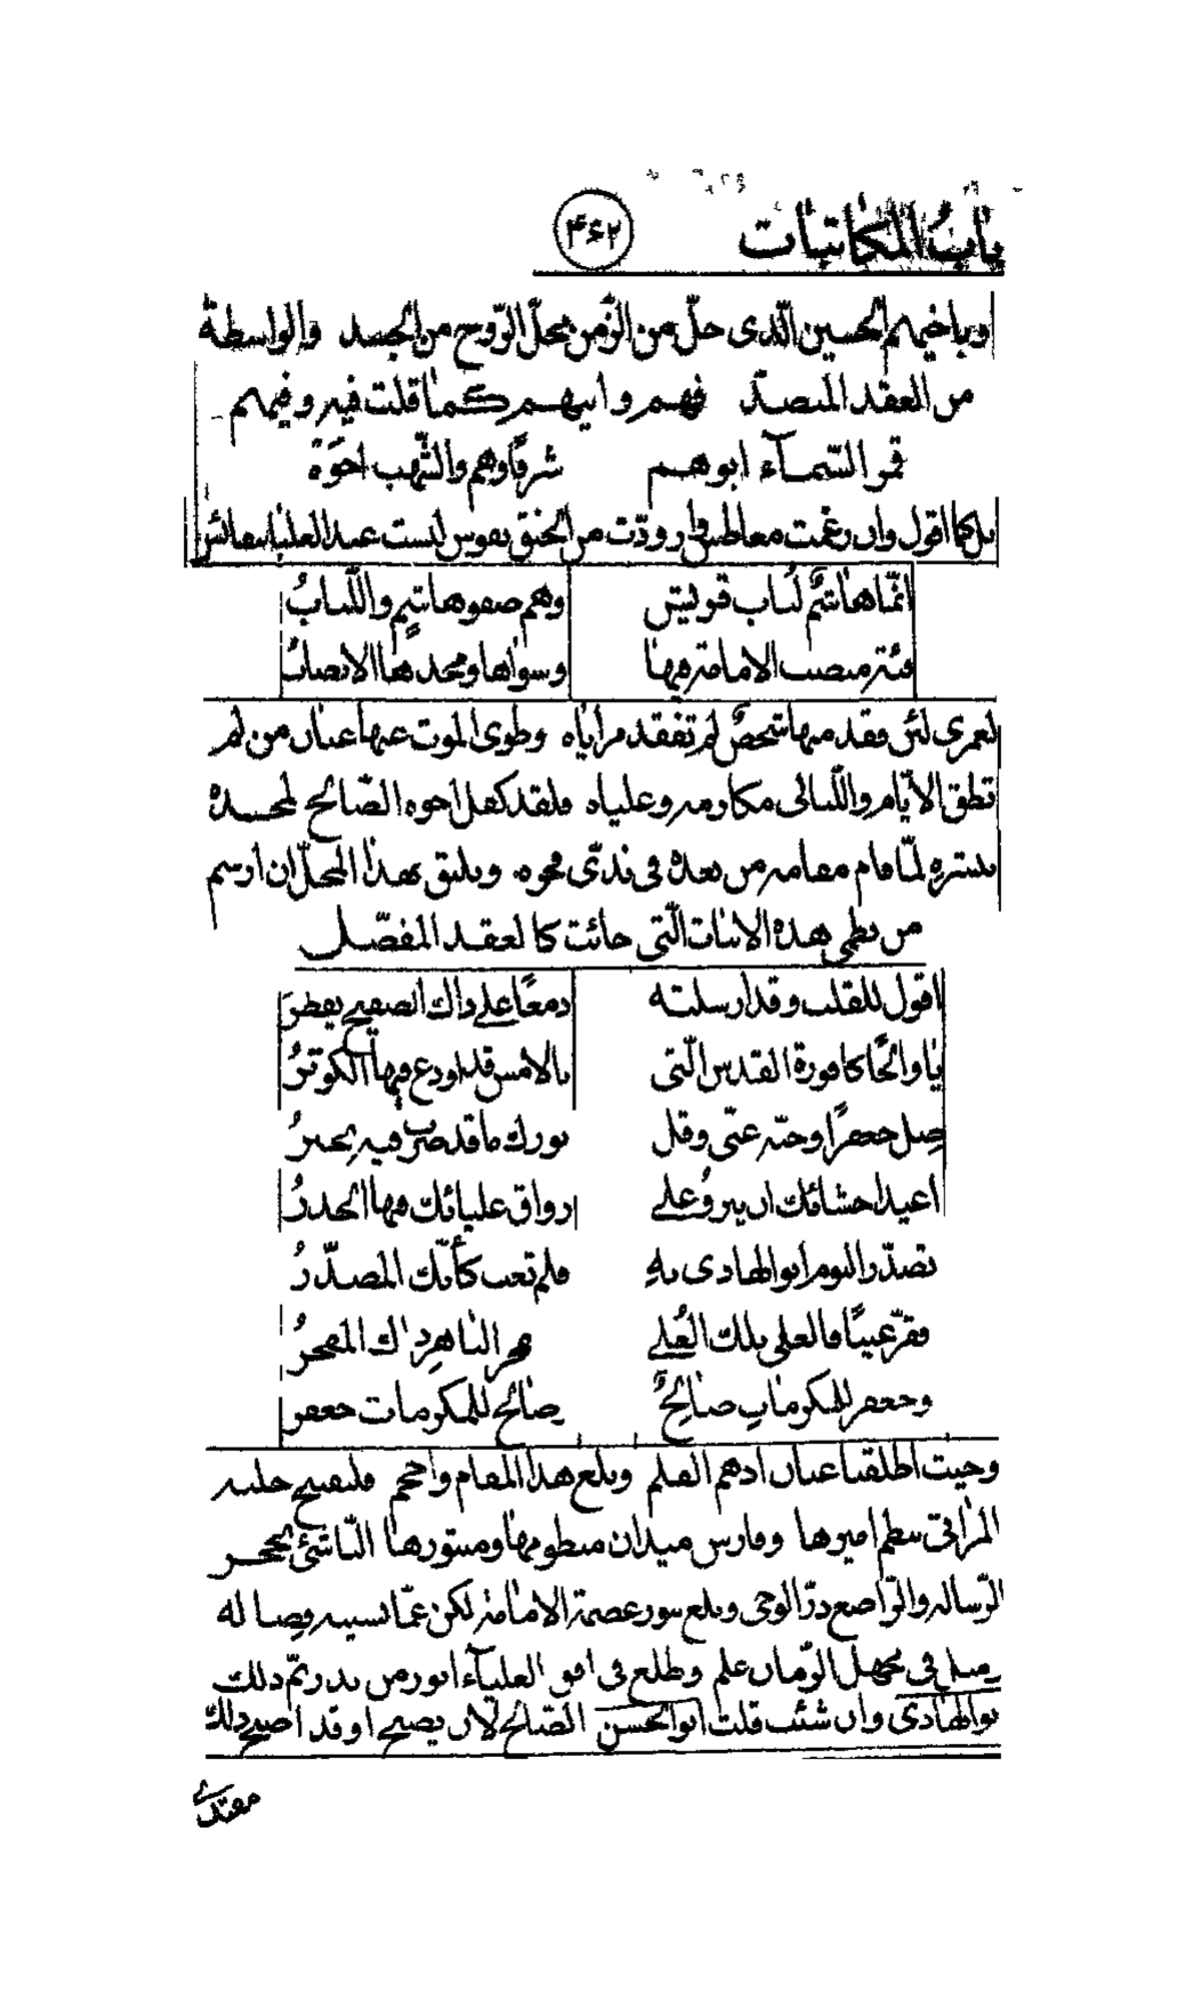 باب المكاتبات ۴۶۲
وباخيهم الحسين الّذى حلّ من الزّمن محلّ الرّوح من الجسد والواسطة
من العقد المنضد فهم وابيهم كما قلت فيه وفيهم
قمر السّمآء ابوهم شرفًا وهم والشّهب اخوة
بل كما اقول وان رغمت معاطس وازورّت من الحنق
انّما هاشمٌ لُباب قريش وهم صفو هاشم واللّبابُ
منصب الامامة فيها وسواها ومجدها الانصابُ
لعمرى لئن فقد منها شخصٌ لم تفقد مزاياه وطوى الموت عنها عنان من لم
تطق الايّام واللّيالى مكارمه وعلياه فلقد كفل اخوه الصّالح لمجده
بنشره لمّا قام مقامه من بعده فى ندىّ فخره ويليق بهذا المحلّ ان ارسم
من نظمى هذه الابيات الّتى جائت كالعقد المفصّل
اقول للقلب وقد ارسلته دمعًا على ذاك الصفيح يقطرُ
يا والجًا كافورة القدس الّتى بالامس قد اودع فيها الكوثرُ
صِل جعفرًا وحيّه عنّى وقل بورك ما قد ضرب فيه يحبرُ
اعيذ احشائك ان يبرُ على رواق عليائك فيها الخدرُ
تصدّر اليوم ابو الهادى به فلم تغب كأنّك المصدّرُ
فقرّ عينًا فالعلى بتلك العُلى هى والنّاهز ذاك المفخرُ
وجعفر للمكرمات صالحٌ وصالح للمكرمات جعفر
وحيث اطلقنا عنان ادهم القلم وبلغ هذا المقام واحجم فليفسح حلبة
المراثى بنظم اميرها وفارس ميدان منظومها ومنثورها النّاشئ بحجر
الرّساله والرّاضع درّ الوحى وبلغ سور عصمة الامامة لكن عمّا نسيبه وصاله
فى مجهل الزّمان علم وطلع فى افق العليآء انور من بدر تمّ ذلك
ابو الهادى وان شئت قلت ابو الحسن الصّالح لان يصبح او قد اصبح ذلك
مقتدى